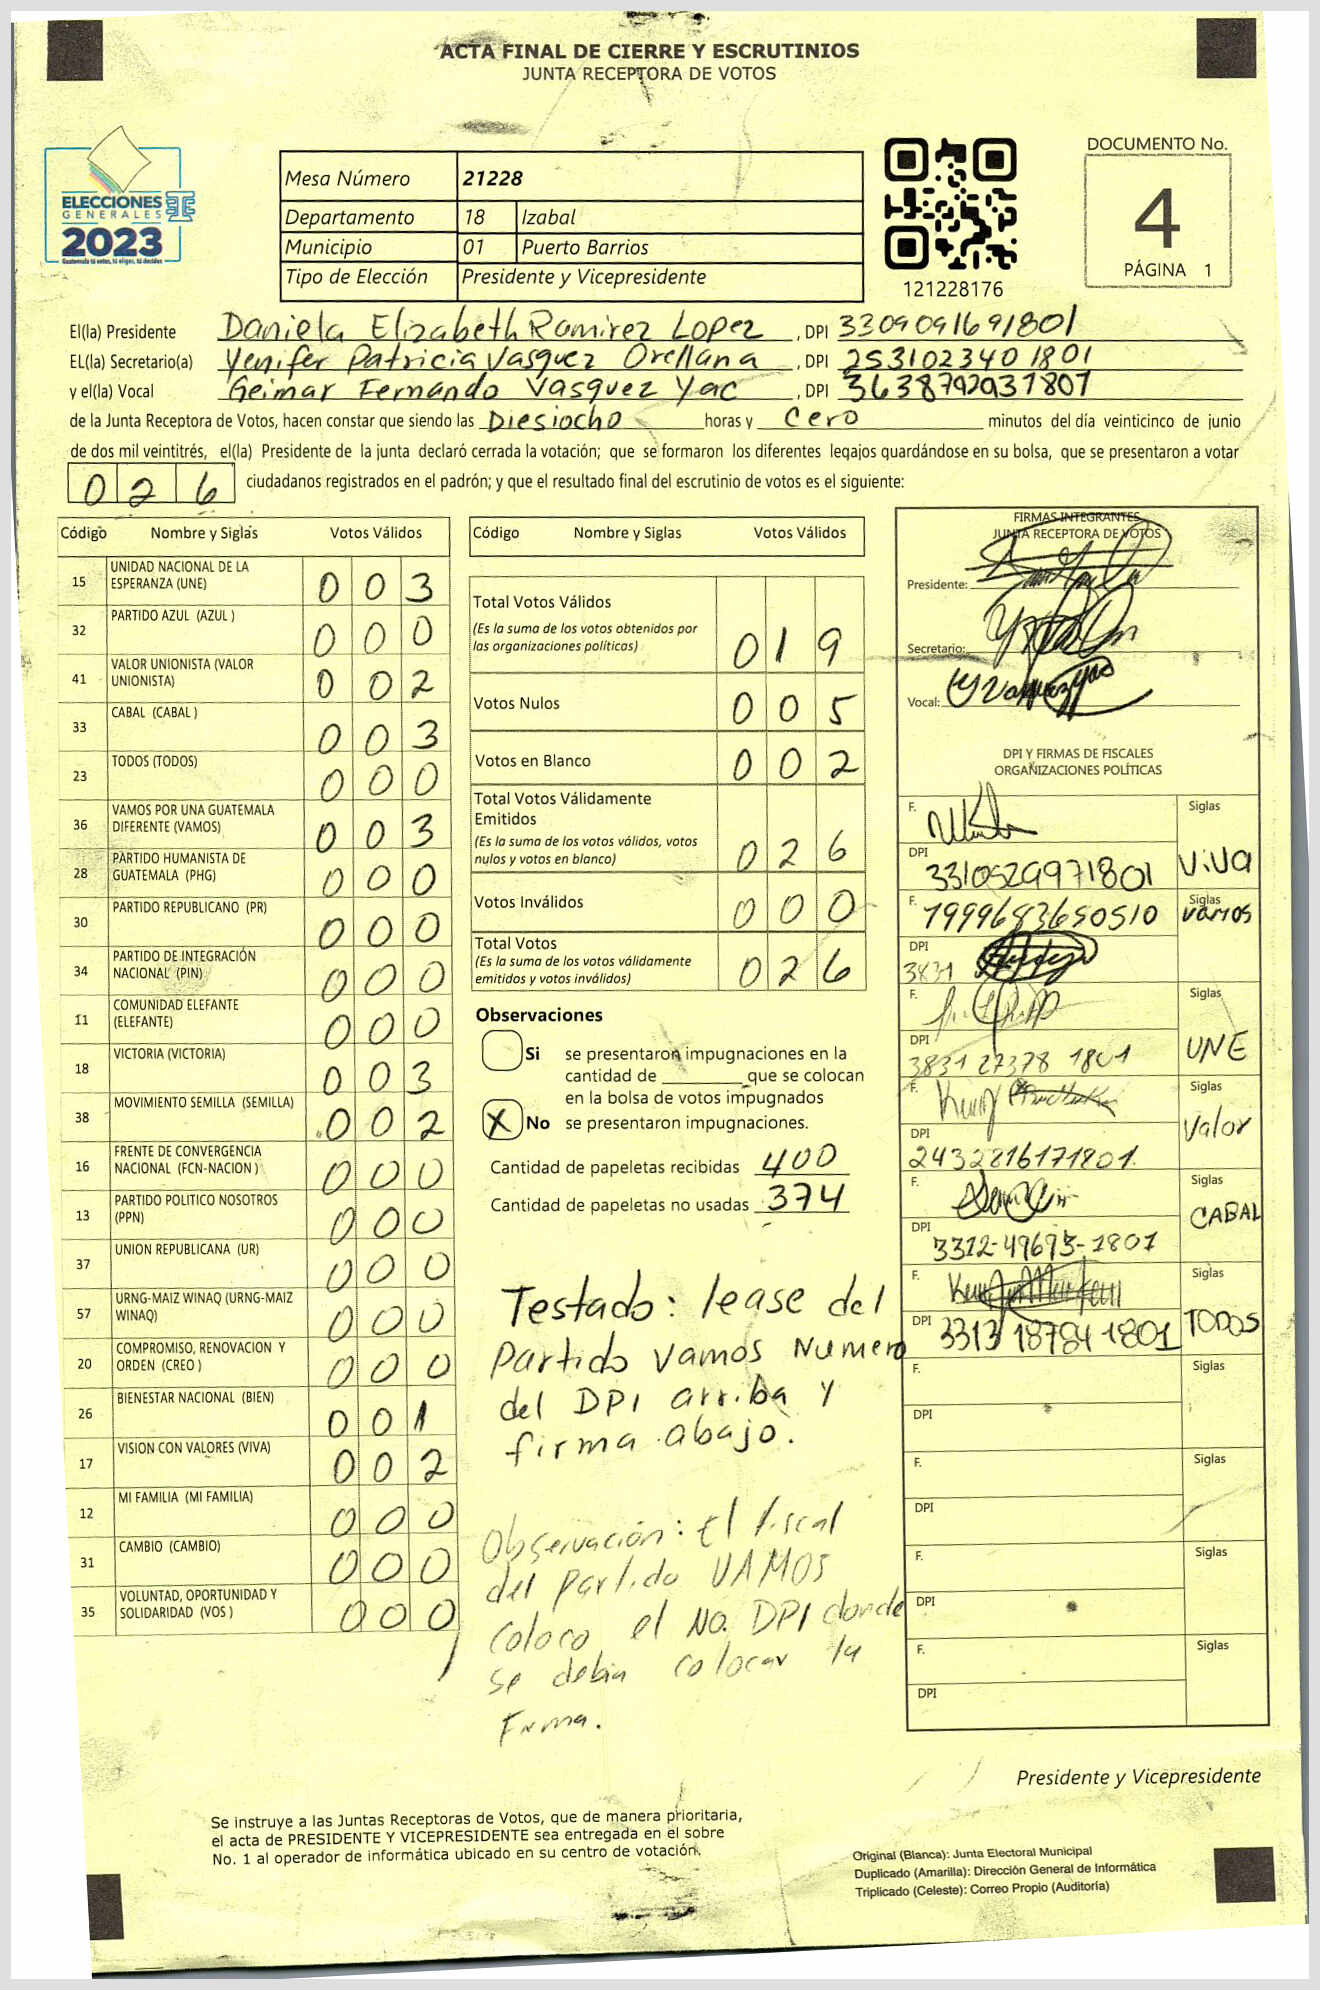 ACTA FINAL DE CIERRE Y ESCRUTINIOS
JUNTA RECEPTORA DE VOTOS
ELECCIONES
GENERALES
2023
Guatemala tú votas, tú eliges, tú decides
Mesa Número 21228
Departamento 18 Izabal
Municipio 01 Puerto Barrios
Tipo de Elección Presidente y Vicepresidente
121228176
DOCUMENTO No.
4
PÁGINA 1
El(la) Presidente Daniela Elizabeth Ramirez Lopez, DPI 3309091691801
EL(la) Secretario(a) Yenifer Patricia Vasquez Orellana, DPI 2531023401801
y el(la) Vocal Geimar Fernando Vasquez Yac, DPI 3638792031801
de la Junta Receptora de Votos, hacen constar que siendo las Diesiocho horas y cero minutos del día veinticinco de junio
de dos mil veintitrés, el(la) Presidente de la junta declaró cerrada la votación; que se formaron los diferentes legajos quardándose en su bolsa, que se presentaron a votar
026 ciudadanos registrados en el padrón; y que el resultado final del escrutinio de votos es el siguiente:
Código Nombre y Siglas Votos Válidos
15 UNIDAD NACIONAL DE LA ESPERANZA (UNE) 003
32 PARTIDO AZUL (AZUL ) 000
41 VALOR UNIONISTA (VALOR UNIONISTA) 002
33 CABAL (CABAL ) 003
23 TODOS (TODOS) 000
36 VAMOS POR UNA GUATEMALA DIFERENTE (VAMOS) 003
28 PARTIDO HUMANISTA DE GUATEMALA (PHG) 000
30 PARTIDO REPUBLICANO (PR) 000
34 PARTIDO DE INTEGRACIÓN NACIONAL (PIN) 000
11 COMUNIDAD ELEFANTE (ELEFANTE) 000
18 VICTORIA (VICTORIA) 003
38 MOVIMIENTO SEMILLA (SEMILLA) 002
16 FRENTE DE CONVERGENCIA NACIONAL (FCN-NACION ) 000
13 PARTIDO POLITICO NOSOTROS (PPN) 000
37 UNION REPUBLICANA (UR) 000
57 URNG-MAIZ WINAQ (URNG-MAIZ WINAQ) 000
20 COMPROMISO, RENOVACION Y ORDEN (CREO ) 000
26 BIENESTAR NACIONAL (BIEN) 001
17 VISION CON VALORES (VIVA) 002
12 MI FAMILIA (MI FAMILIA) 000
31 CAMBIO (CAMBIO) 000
35 VOLUNTAD, OPORTUNIDAD Y SOLIDARIDAD (VOS ) 000
Código Nombre y Siglas Votos Válidos
Total Votos Válidos
(Es la suma de los votos obtenidos por las organizaciones políticas) 019
Votos Nulos 005
Votos en Blanco 002
Total Votos Válidamente Emitidos
(Es la suma de los votos válidos, votos nulos y votos en blanco) 026
Votos Inválidos 000
Total Votos
(Es la suma de los votos válidamente emitidos y votos inválidos) 026
Observaciones
Si se presentaron impugnaciones en la
cantidad de ________ que se colocan
en la bolsa de votos impugnados
X No se presentaron impugnaciones.
Cantidad de papeletas recibidas 400
Cantidad de papeletas no usadas 374
Testado: lease del
Partido vamos Numero
del DPI arriba y
firma abajo.
Observación: El fiscal
del partido VAMOS
coloco el No. DPI donde
se debia colocar la
Firma.
FIRMAS INTEGRANTES
JUNTA RECEPTORA DE VOTOS
Presidente:
Secretario:
Vocal:
DPI Y FIRMAS DE FISCALES
ORGANIZACIONES POLÍTICAS
F. Siglas
DPI 3310529971801 ViVa
F. 1999683650510 Siglas vamos
DPI 3831
F. Siglas
DPI 3831 27378 1801 UNE
F. Siglas
DPI 2432816171801 Valor
F. Siglas
DPI 3312-49693-1801 CABAL
F. Siglas
DPI 3313 18784 1801 TODOS
F. Siglas
DPI
F. Siglas
DPI
F. Siglas
DPI
F. Siglas
DPI
Presidente y Vicepresidente
Se instruye a las Juntas Receptoras de Votos, que de manera prioritaria,
el acta de PRESIDENTE Y VICEPRESIDENTE sea entregada en el sobre
No. 1 al operador de informática ubicado en su centro de votación.
Original (Blanca): Junta Electoral Municipal
Duplicado (Amarilla): Dirección General de Informática
Triplicado (Celeste): Correo Propio (Auditoría)